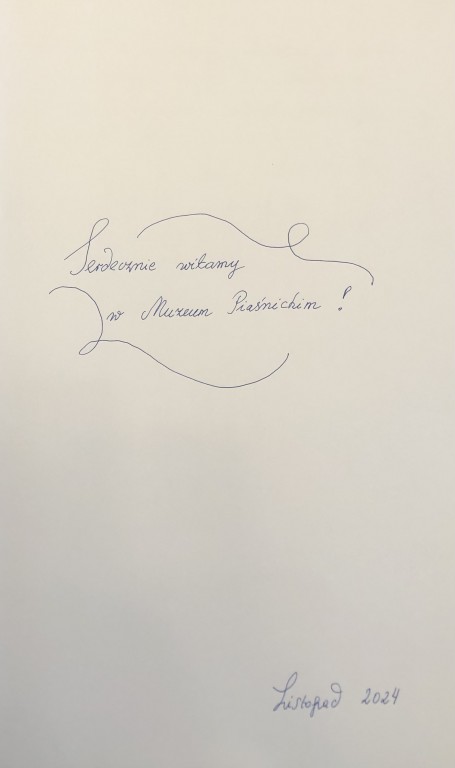 Serdecznie witamy
w Muzeum Piaśnickim !
Listopad 2024